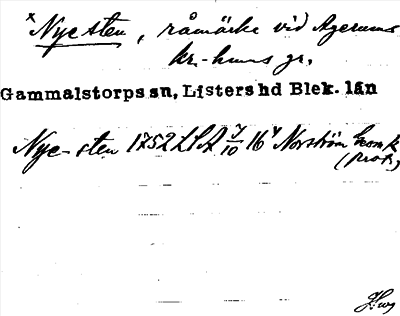 *Nye sten, råmärke vid Agerums
kr.-hmns gr.
Gammalstorps sn, Listers hd Blek. län
Nye-sten 1752 LSA 7/10 16 Norström
(prot.)